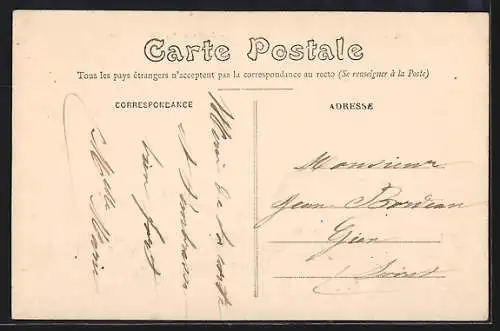 Carte Postale
Tous les pays étrangers n'acceptent pas la correspondance au recto (Se renseigner à la Poste)
CORRESPONDANCE
ADRESSE
Merci de la carte
et t'embrasse
bien fort
Marie
Monsieur
Jean Bordeau
Gien
Loiret